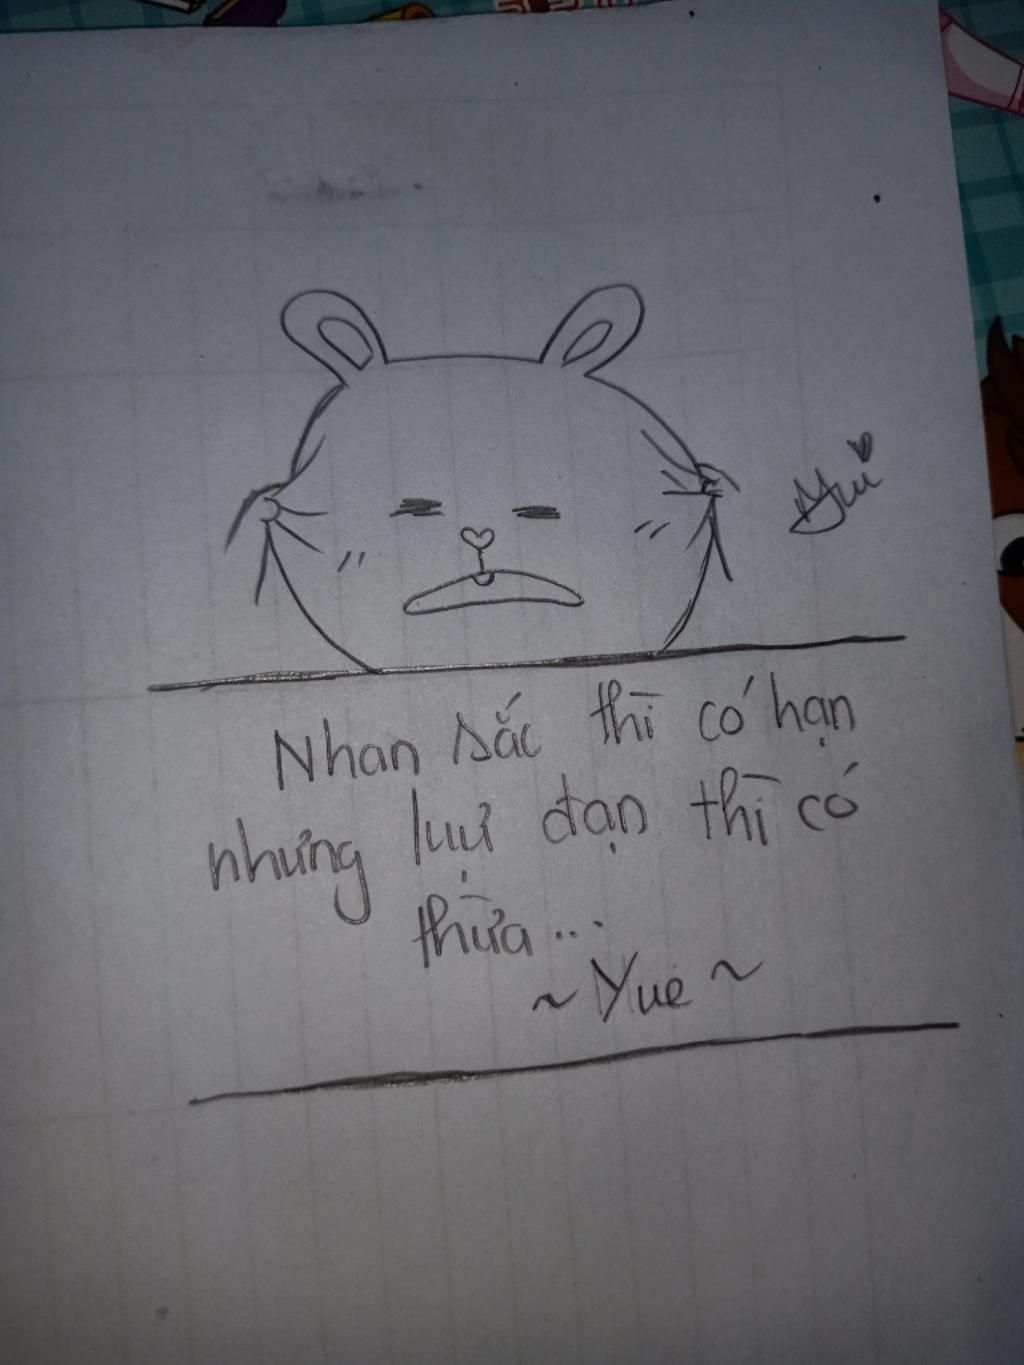 Yui
Nhan sắc thì có hạn
nhưng lựu đạn thì có
thừa...
~ Yue ~